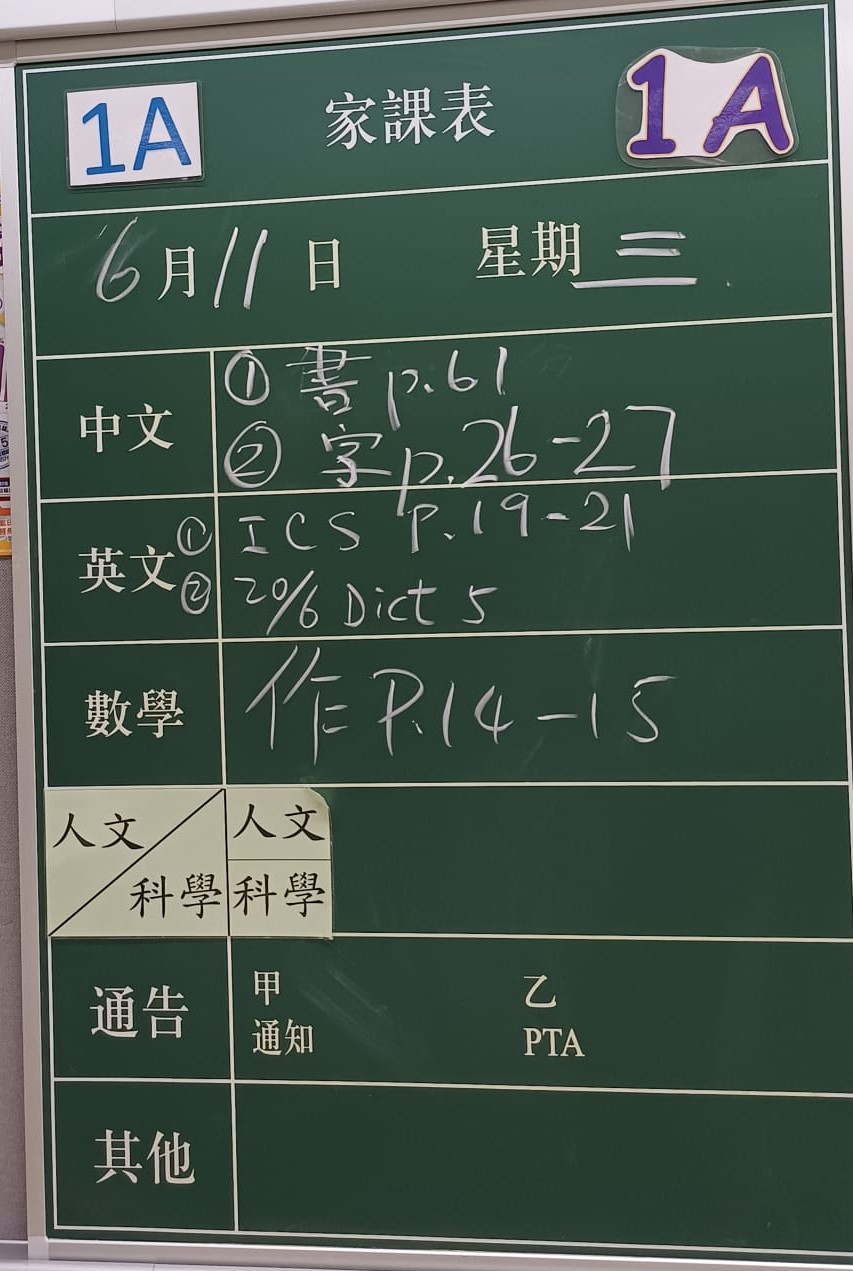 1A 家課表 1A
6月11日 星期三
中文 ① 書 p.61
② 字 p.26-27
英文 ① ICS P.19-21
② 20/6 Dict 5
數學 作 P.14-15
人文/科學 人文
科學
通告 甲 乙
通知 PTA
其他